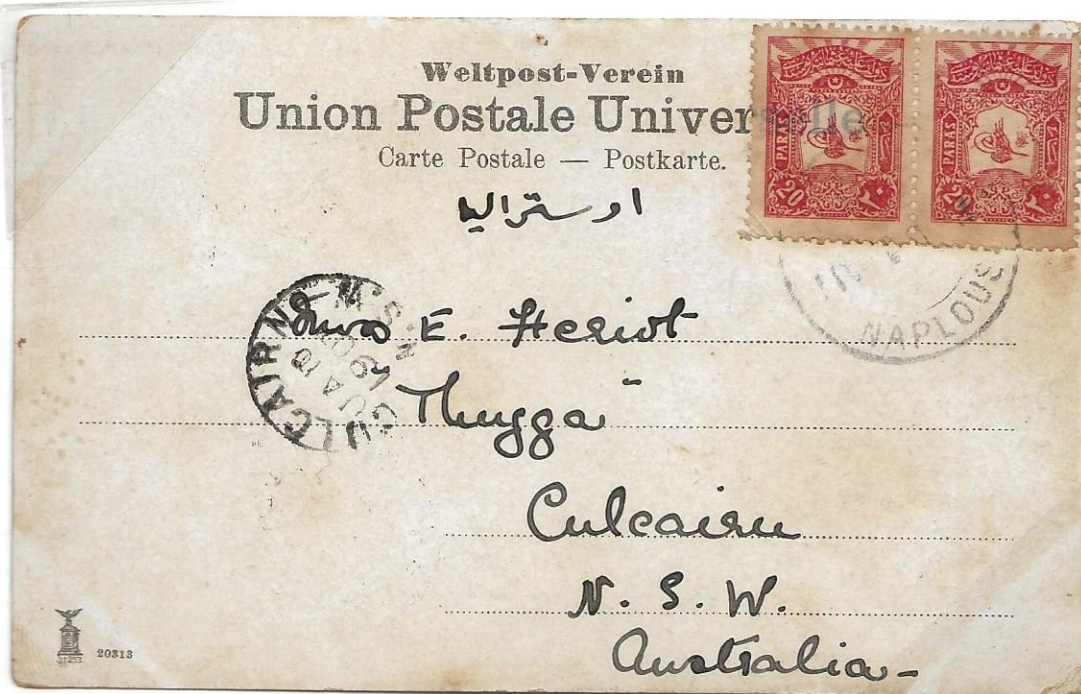 Weltpost-Verein
Union Postale Universelle
Carte Postale — Postkarte.
اوستراليا
PARAS
20
٢٠
PARAS
20
٢٠
NAPLOUSE
CULCAIRN
N.S.W
E. Heriot
Thugga
Culcairn
N. S. W.
Australia-
20313